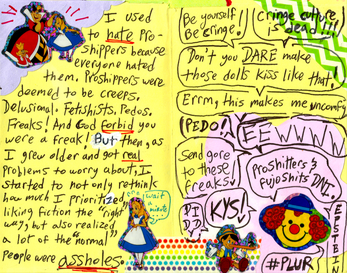 I used
to hate Pro-
shippers because
everyone hated
them. Proshippers were
deemed to be creeps.
Delusional. Fetishists, Pedos.
Freaks! And God forbid you
were a freak! But then, as
I grew older and got real
problems to worry about, I
started to not only rethink
how much I prioritized
liking fiction the "right"
way, but also realized
a lot of the "normal"
people were assholes.
wait
a
minute
Be yourself!
Be cringe!
Cringe culture
is dead!!!
Don't you DARE make
those dolls kiss like that!
Errm, this makes me uncomfy
(PEDO!)
EEWWWW
Send gore
to these
freaks!
Proshitters &
fujoshits DNI.
DIDDY
KYS!
EPSTEIN
#PLUR